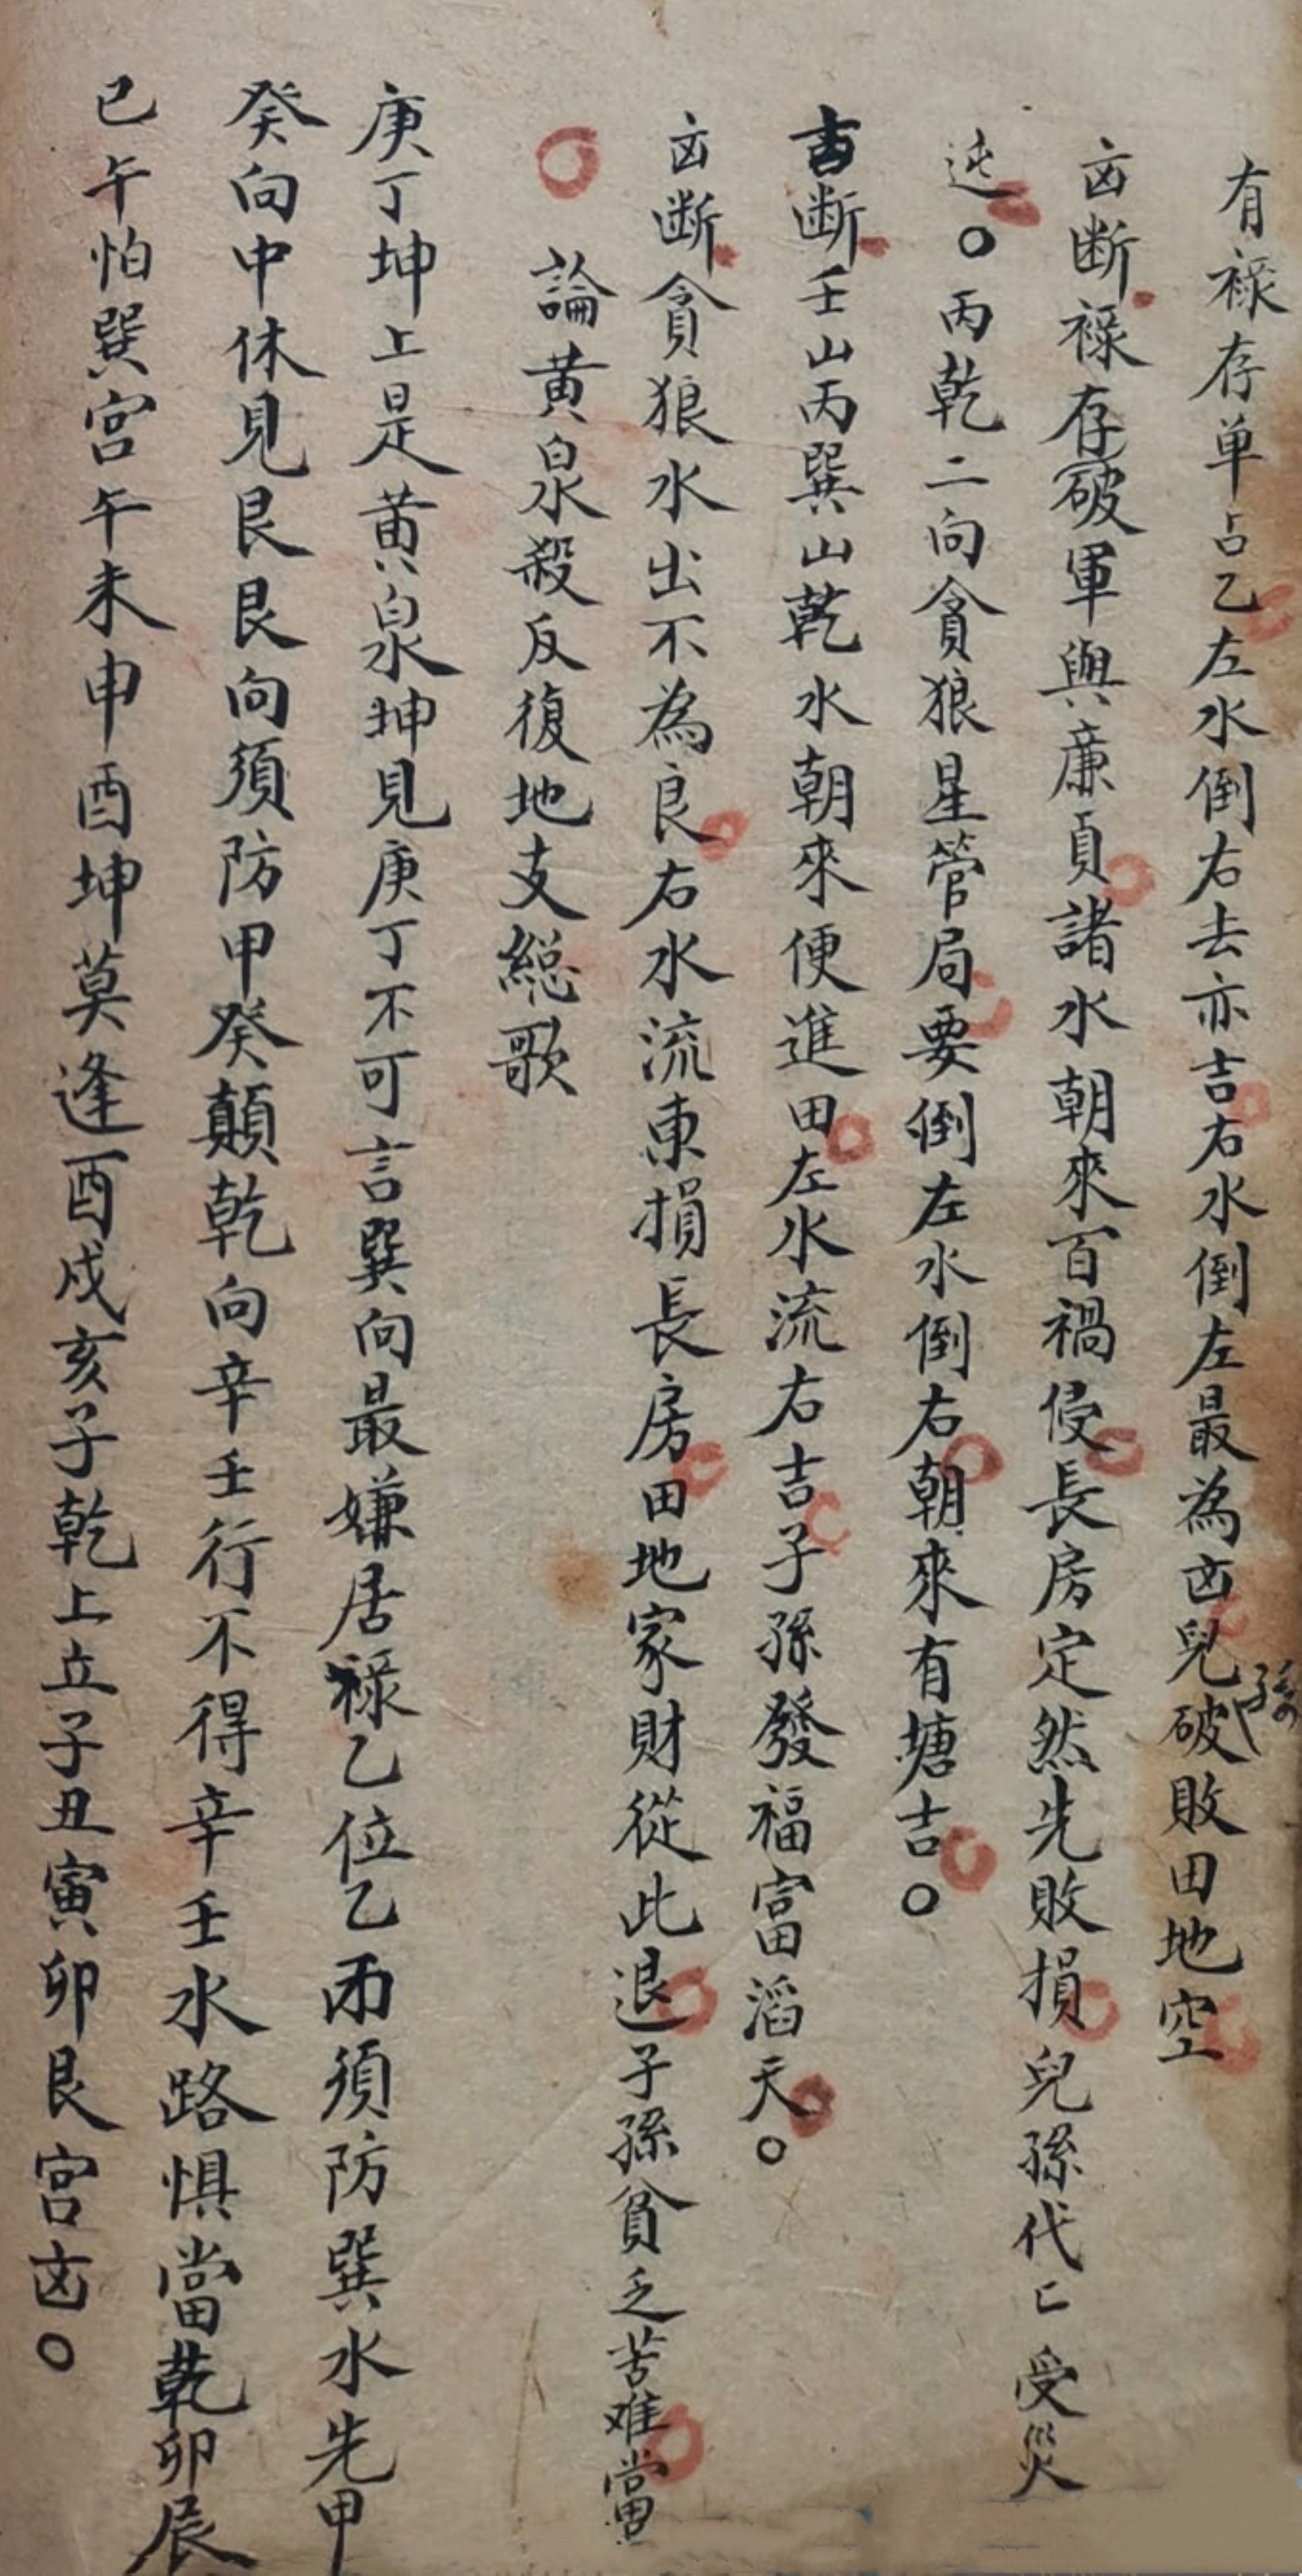 有禄存单占乙左水倒右去亦吉右水倒左最為凶兒孫破敗田地空
凶断禄存破軍與廉貞諸水朝來百禍侵長房定然先敗損兒孫代亡受災
迍○丙乾二向貪狼星管局要倒左水倒右朝來有塘吉○
吉断壬山丙巽山乾水朝來便進田左水流右吉子孫發福富滔天○
凶断貪狼水出不為良右水流東損長房田地家財從此退子孫貧乏苦难當
○論黄泉殺反復地支總歌
庚丁坤上是黄泉坤見庚丁不可言巽向最嫌居禄乙位乙丙須防巽水先甲
癸向中休見艮艮向須防甲癸顛乾向辛壬行不得辛壬水路惧當乾卯辰
巳午怕巽宫午未申酉坤莫逢酉戌亥子乾上立子丑寅卯艮宫凶○